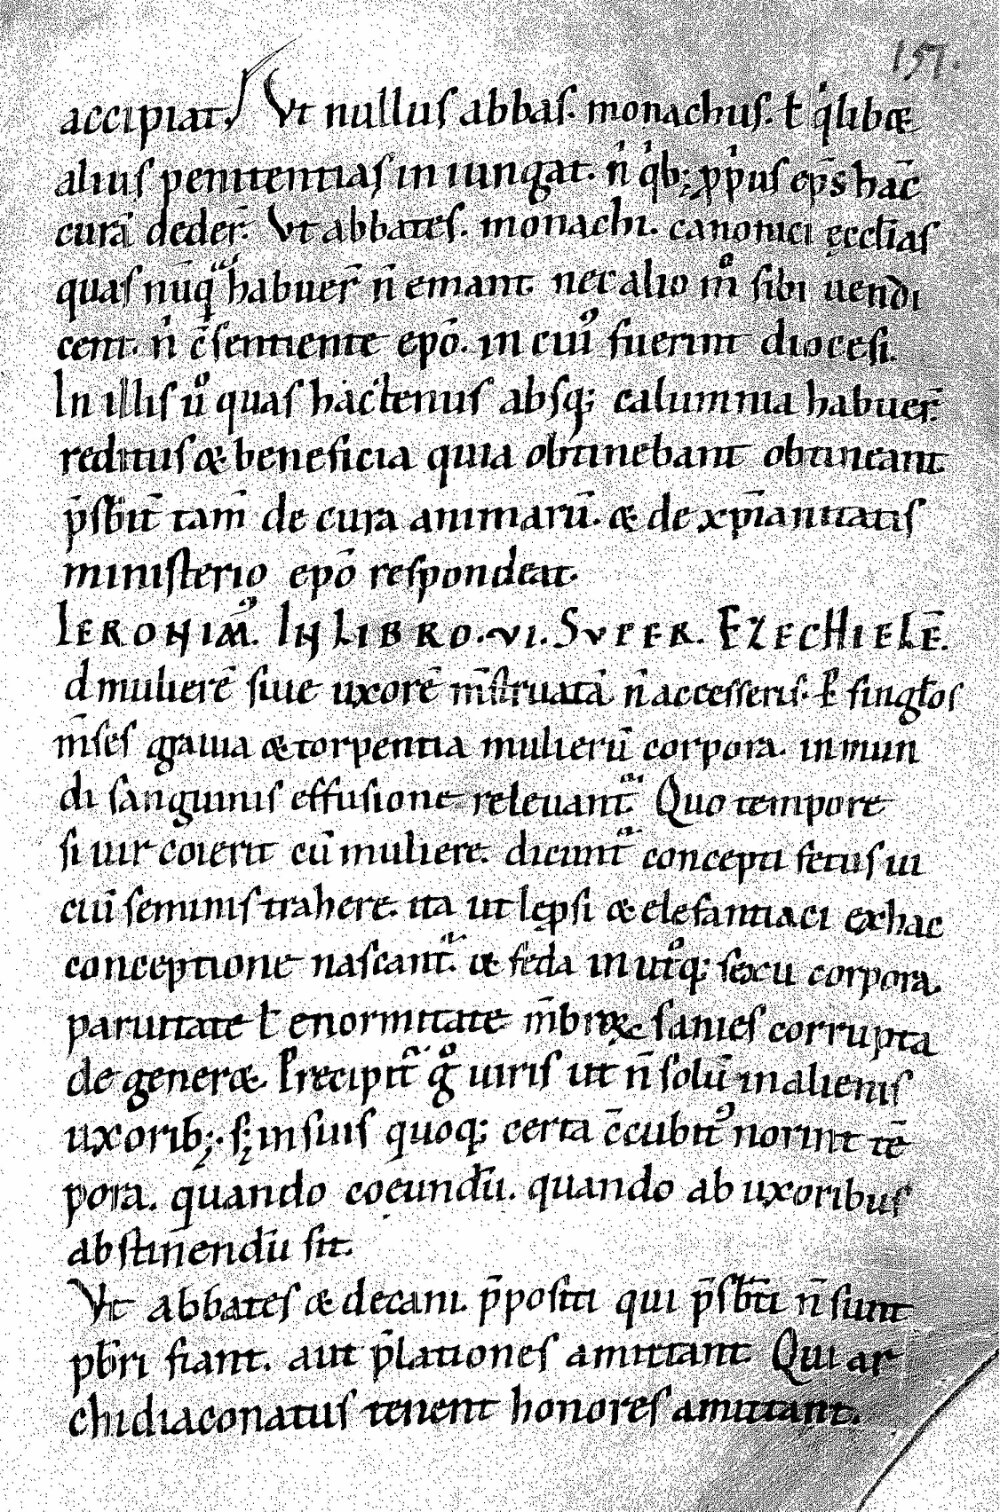 151.
accipiat. Vt nullus abbas. monachus. ł q̇libꝫ
alius penitentias iniungat. n̄ qͥb; ꝓpͥus ep̄s hāc
curā dedeř. Vt abbates. monachi. canonici ęccƚias
quas nūqͣ habuer̄ n̄ emant. nec alio m̊ sibi uendi
cent. nͥ c̄sentiente ep̄o. in cuiꝰ fuerint diocesi.
In illis ů quas hactenus absq; calumnia habuer̄.
reditus & beneficia quia obtinebant obtineant
p̄sbit̄ tam̄ de cura animarū. & de xp̄ianitatis
ministerio ep̄o respondeat.
IERONIMꝰ. IN LIBRO .VI. SVPER. EZECHIELĒ.
d mulierē siue uxorē m̄struatā n̄ accesseris. P̱ singƚos
m̄ses grauia & torpentia mulierū corpora. inmun
di sanguinis effusione releuantᷣ. Quo tempore
si uir coierit cū muliere. dicuntᷣ concepti fetus ui
ciū seminis trahere. ita ut lęp̱si & elefantiaci ex hac
conceptione nascantᷣ. & feda in utͦq; sexu corpora.
paruitate ł enormitate m̄broꝝ sanies corrupta
degeneret. Precipitᷣ g̊ uiris ut n̄ solū in alienis
uxorib;. sꝫ in suis quoq; certa c̄cubitꝰ norint tē
pora. quando coeundū. quando ab uxoribus
abstinendū sit.
Vt abbates & decani. p̄positi qui p̄sbt̄i n̄ sunt
pƀri fiant. aut p̄lationes amittant. Qui ar
chidiaconatus tenent honores amittant.